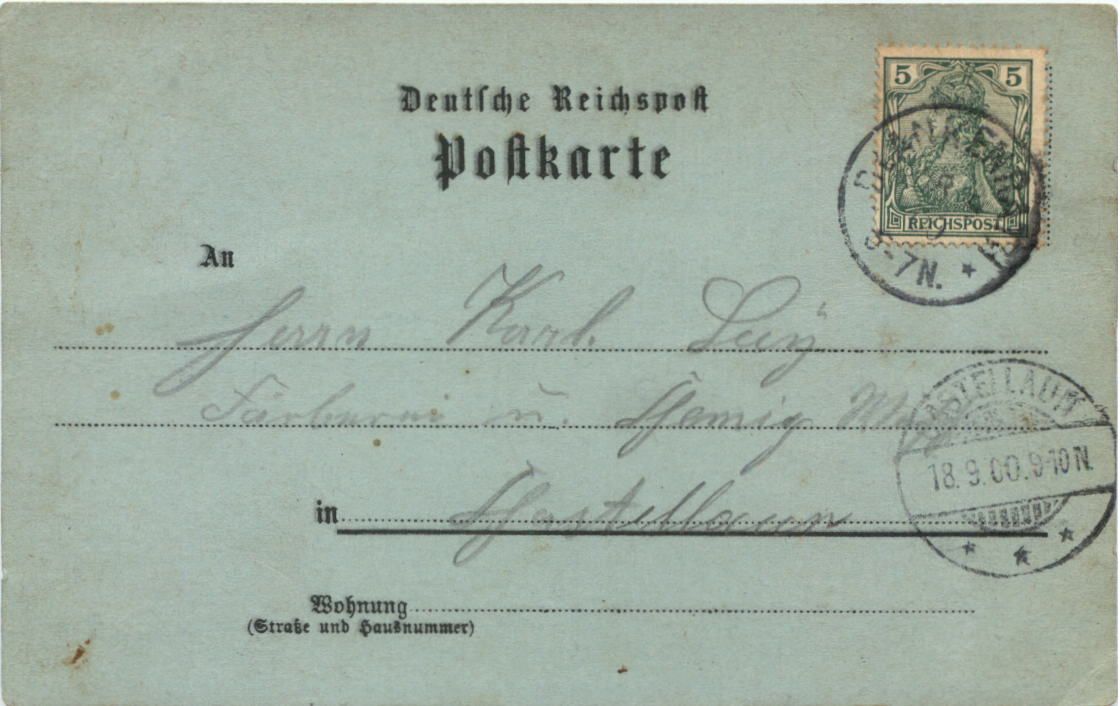 Deutsche Reichspost
Postkarte
5 5
REICHSPOST
-7N.
An
Herrn Karl
Färberei u.
KASTELLAUN
18.9.00.9-10N.
in Kastellaun
Wohnung
(Straße und Hausnummer)